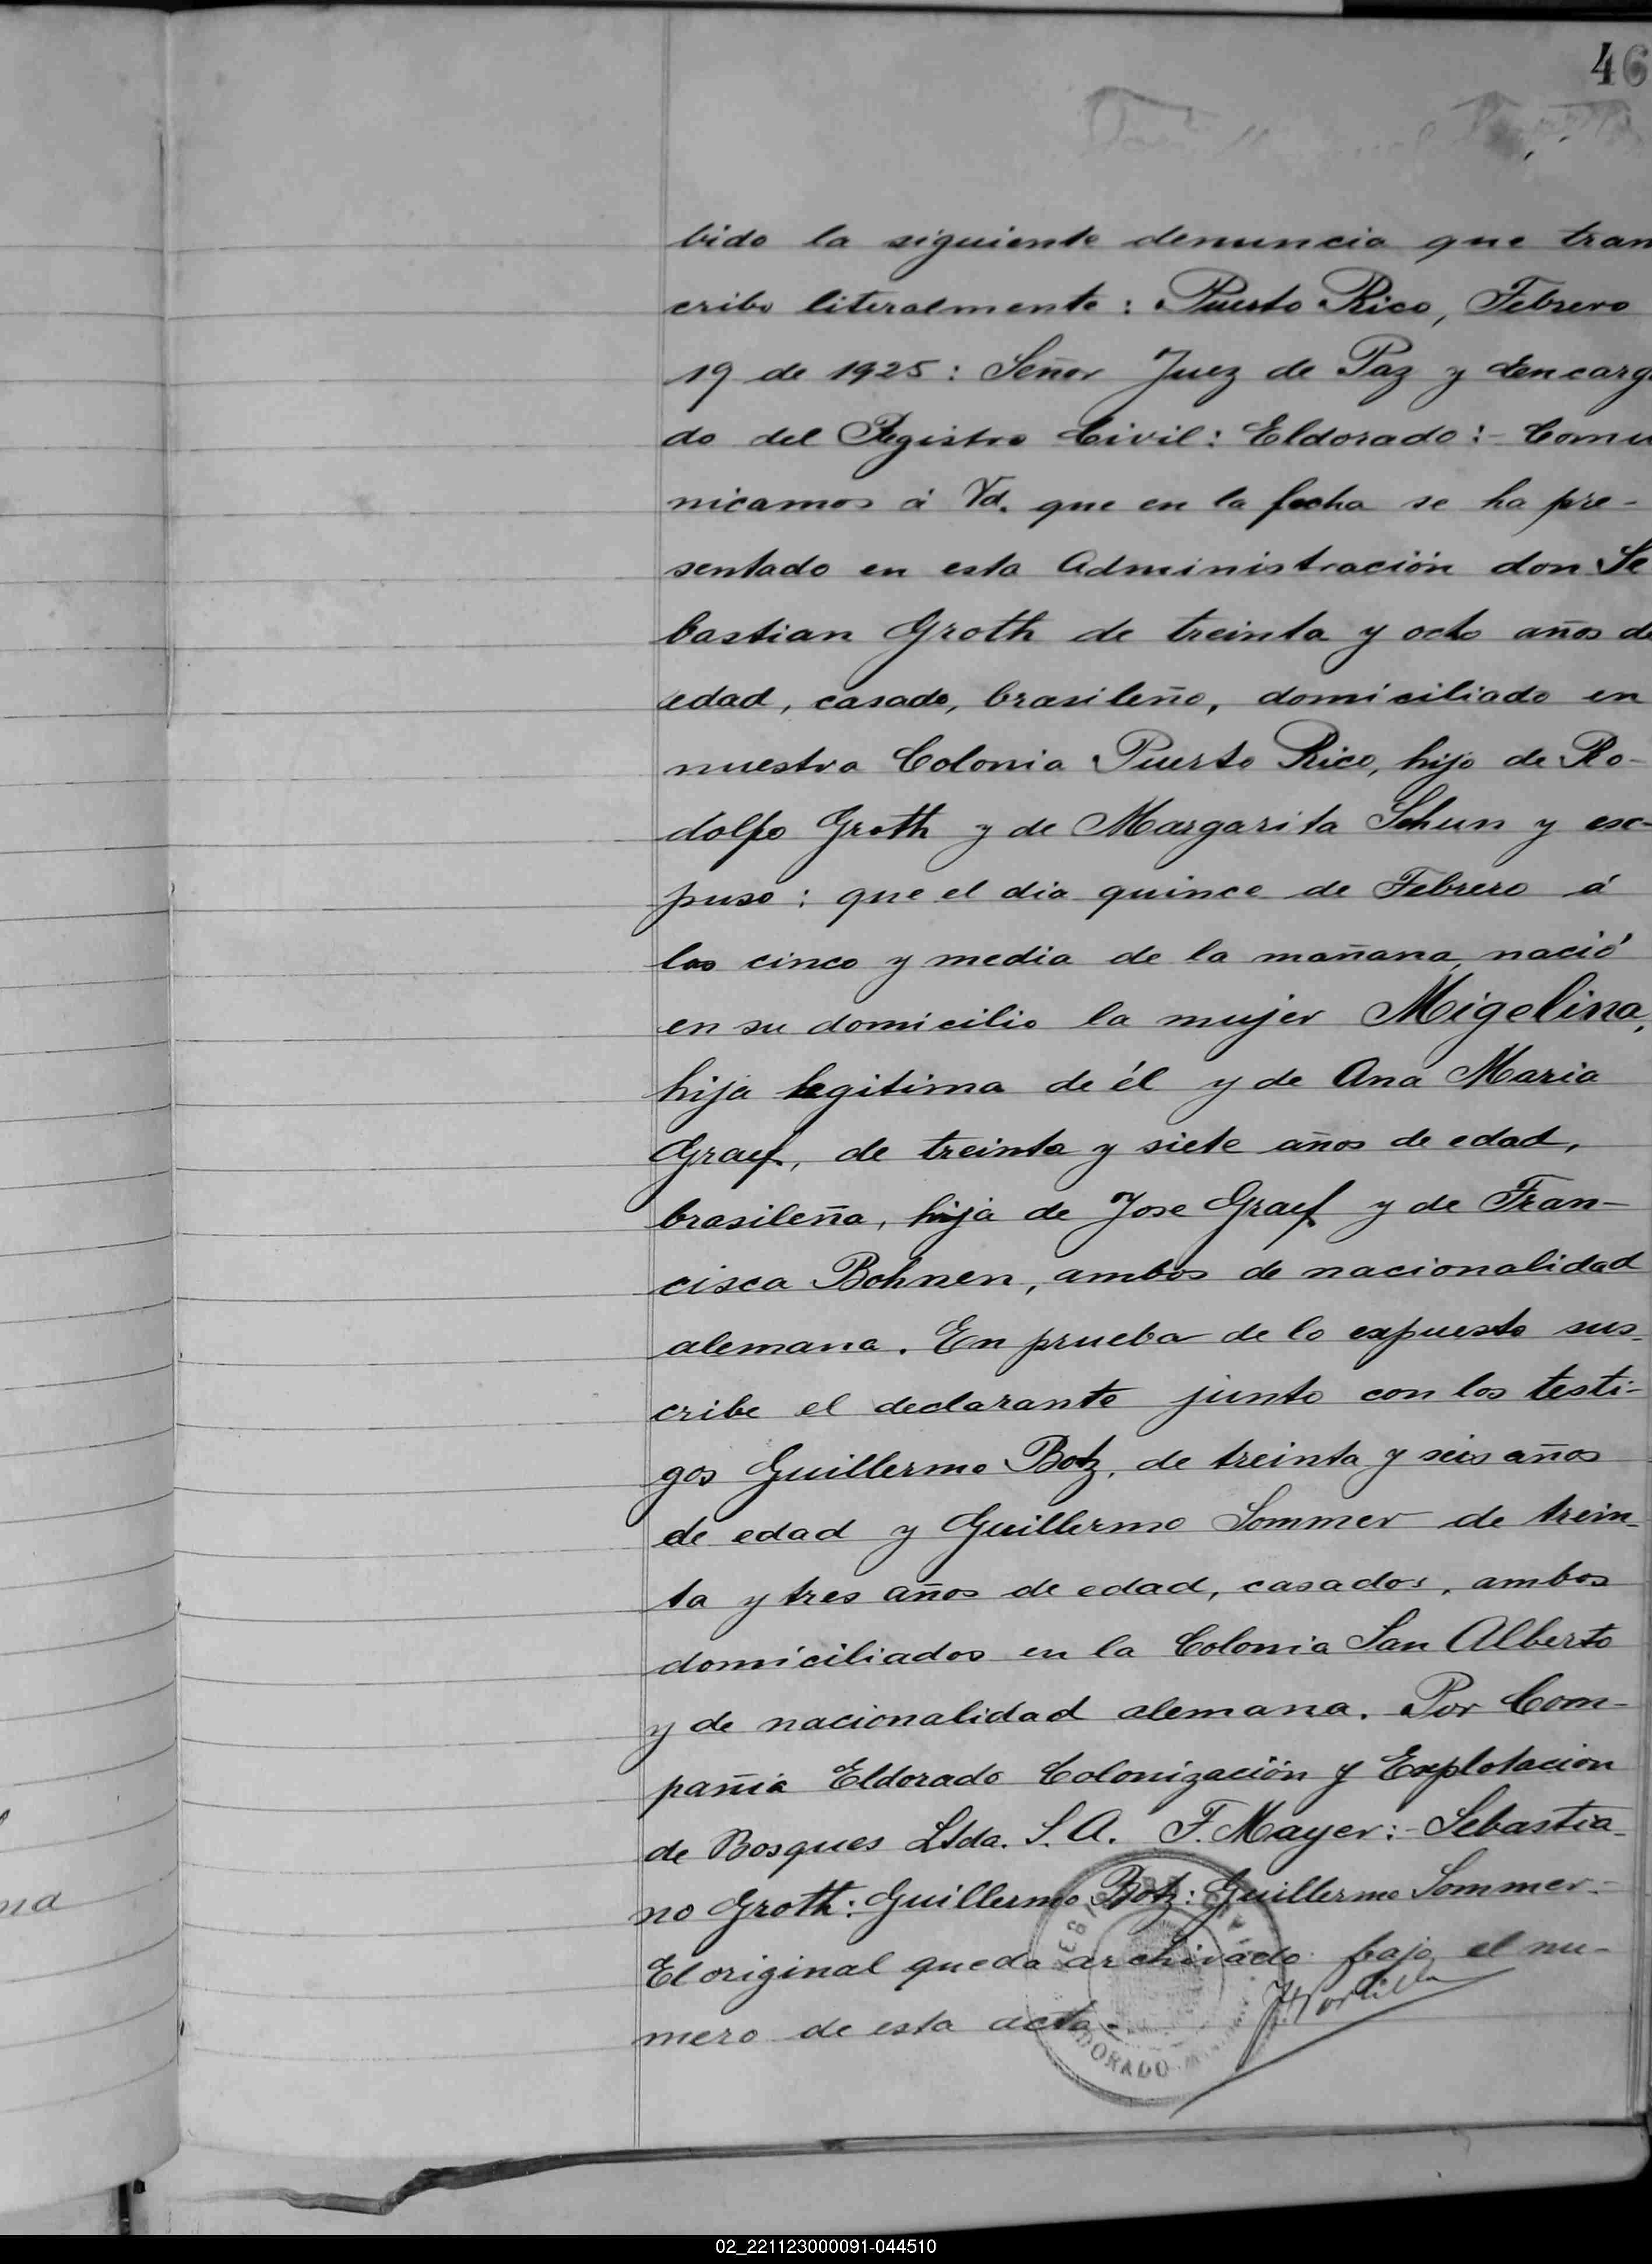 46
bido la siguiente denuncia que tran
cribo literalmente: Puerto Rico, Febrero
19 de 1925: Señor Juez de Paz y Encarga
do del Registro Civil: Eldorado:- Comu
nicamos á Vd. que en la fecha se ha pre-
sentado en esta Administración don Se
bastian Groth de treinta y ocho años de
edad, casado, brasileño, domiciliado en
nuestra Colonia Puerto Rico, hijo de Ro-
dolfo Groth y de Margarita Schun y esc-
puso: que el dia quince de Febrero á
las cinco y media de la mañana, nació
en su domicilio la mujer Migelina,
hija legitima de él y de Ana Maria
Graef, de treinta y siete años de edad,
brasileña, hija de Jose Graef y de Fran-
cisca Bohnen, ambos de nacionalidad
alemana. En prueba de lo expuesto sus-
cribe el declarante junto con los testi-
gos Guillermo Botz, de treinta y seis años
de edad y Guillermo Sommer de trein-
ta y tres años de edad, casados, ambos
domiciliados en la Colonia San Alberto
y de nacionalidad alemana. Por Com-
pañia Eldorado Colonización y Explotacion
de Bosques Ltda. S. A. F. Mayer:- Sebastia-
no Groth: Guillermo Botz: Guillermo Sommer:-
El original queda archivado bajo el nu-
mero de esta acta.-
na
DORADO
02_221123000091-044510